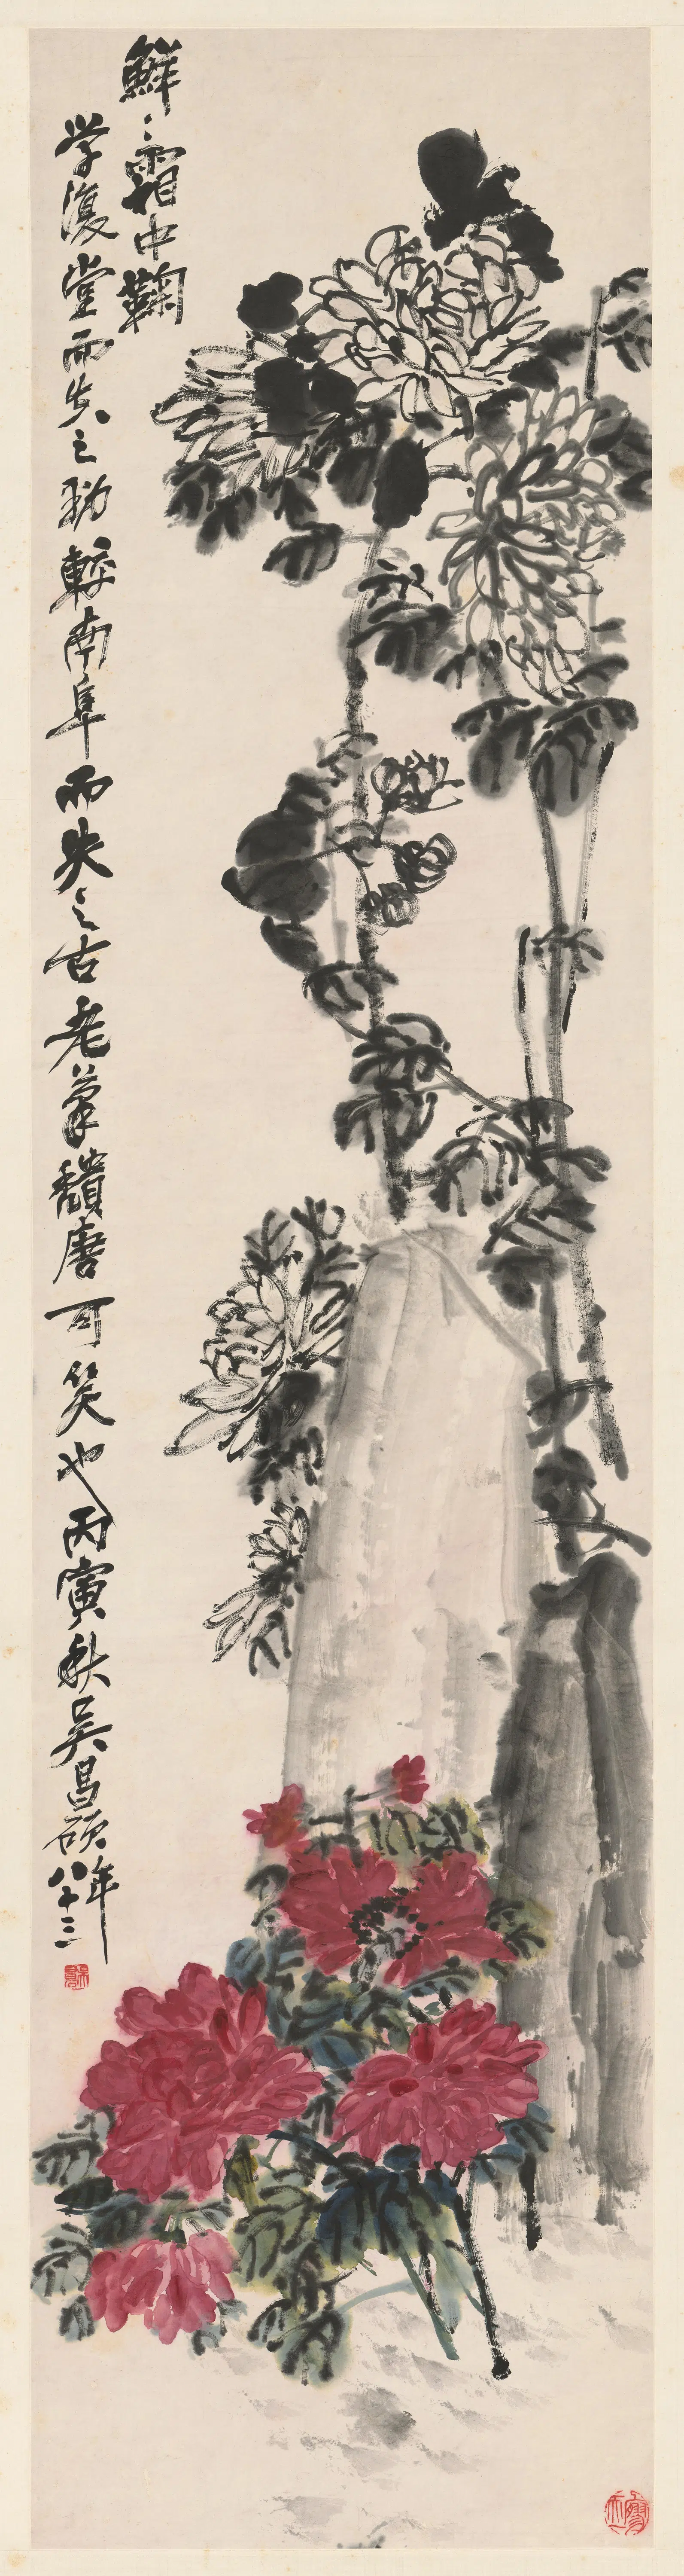 鮮〻霜中鞠
学復堂而失之勁較南阜而失之古老筆穨唐可笑也丙寅秋吳昌碩年八十三